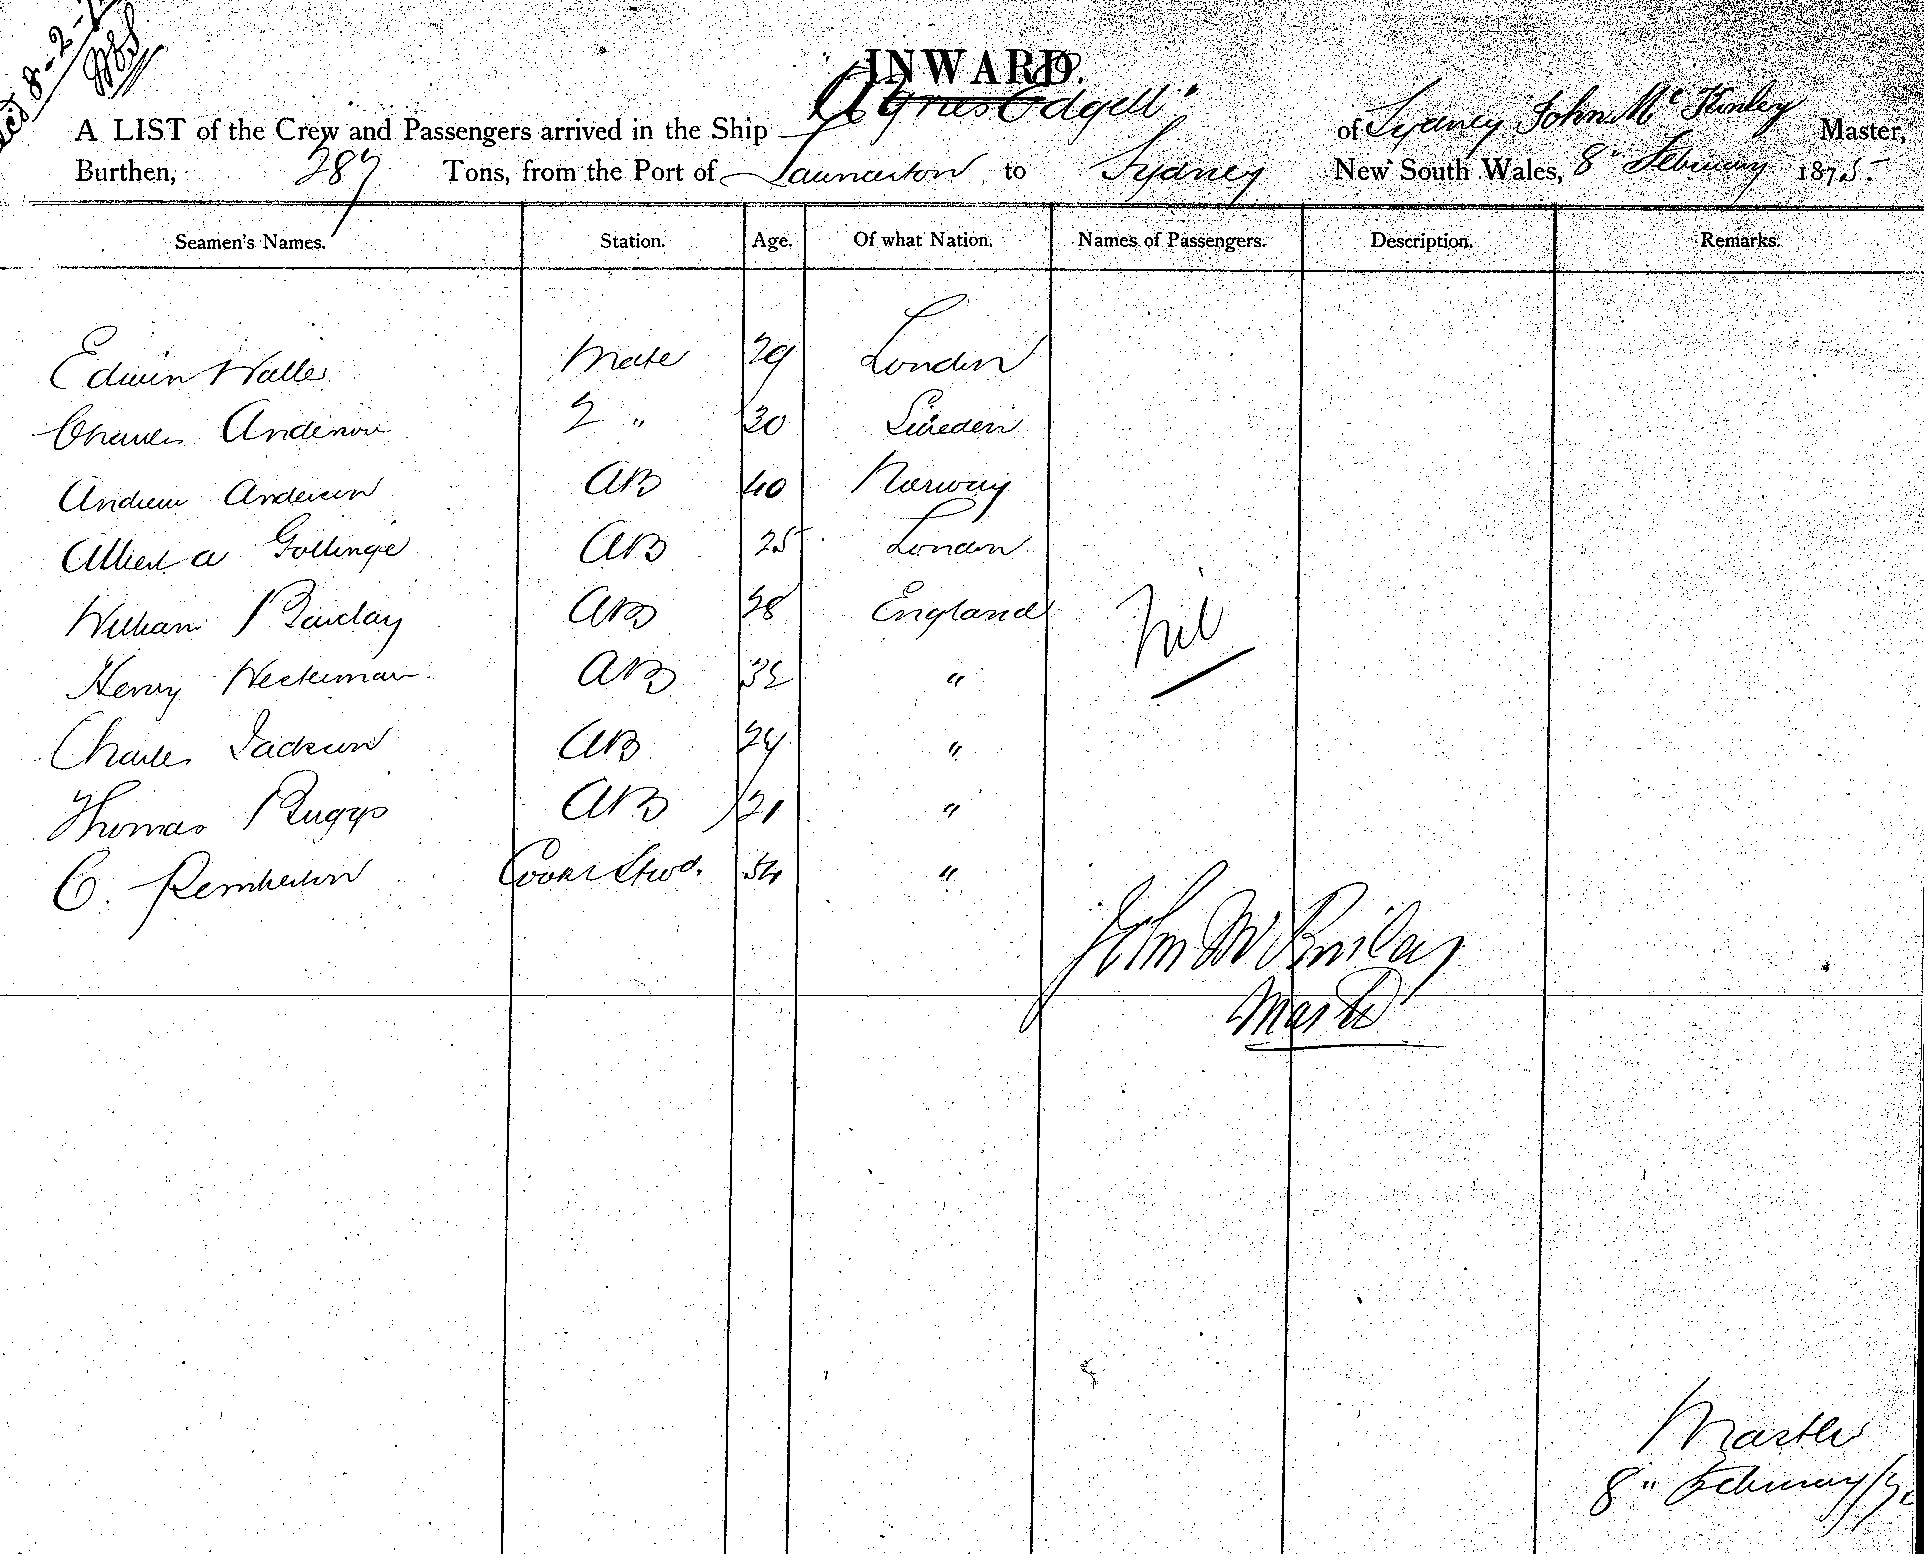 8-2-
INWARD.
A LIST of the Crew and Passengers arrived in the Ship "Agnes Edgell" of Sydney John Mc Kinley Master,
Burthen, 287 Tons, from the Port of Launceston to Sydney New South Wales, 8" February 1875.
Seamen's Names. Station. Age. Of what Nation. Names of Passengers. Description. Remarks.
Edwin Waller Mate 29 London
Charles Anderson 2 " 30 Sweden
Andrew Anderson AB 40 Norway
Albert A Gollinge AB 25 London
William Barclay AB 28 England
Nil
Henry Westerman AB 32 "
Charles Jackson AB 24 "
Thomas Buggs AB 21 "
C. Pemberton Cook & Stwd. 54 "
John McKinlay
Master
Master
8" February/75